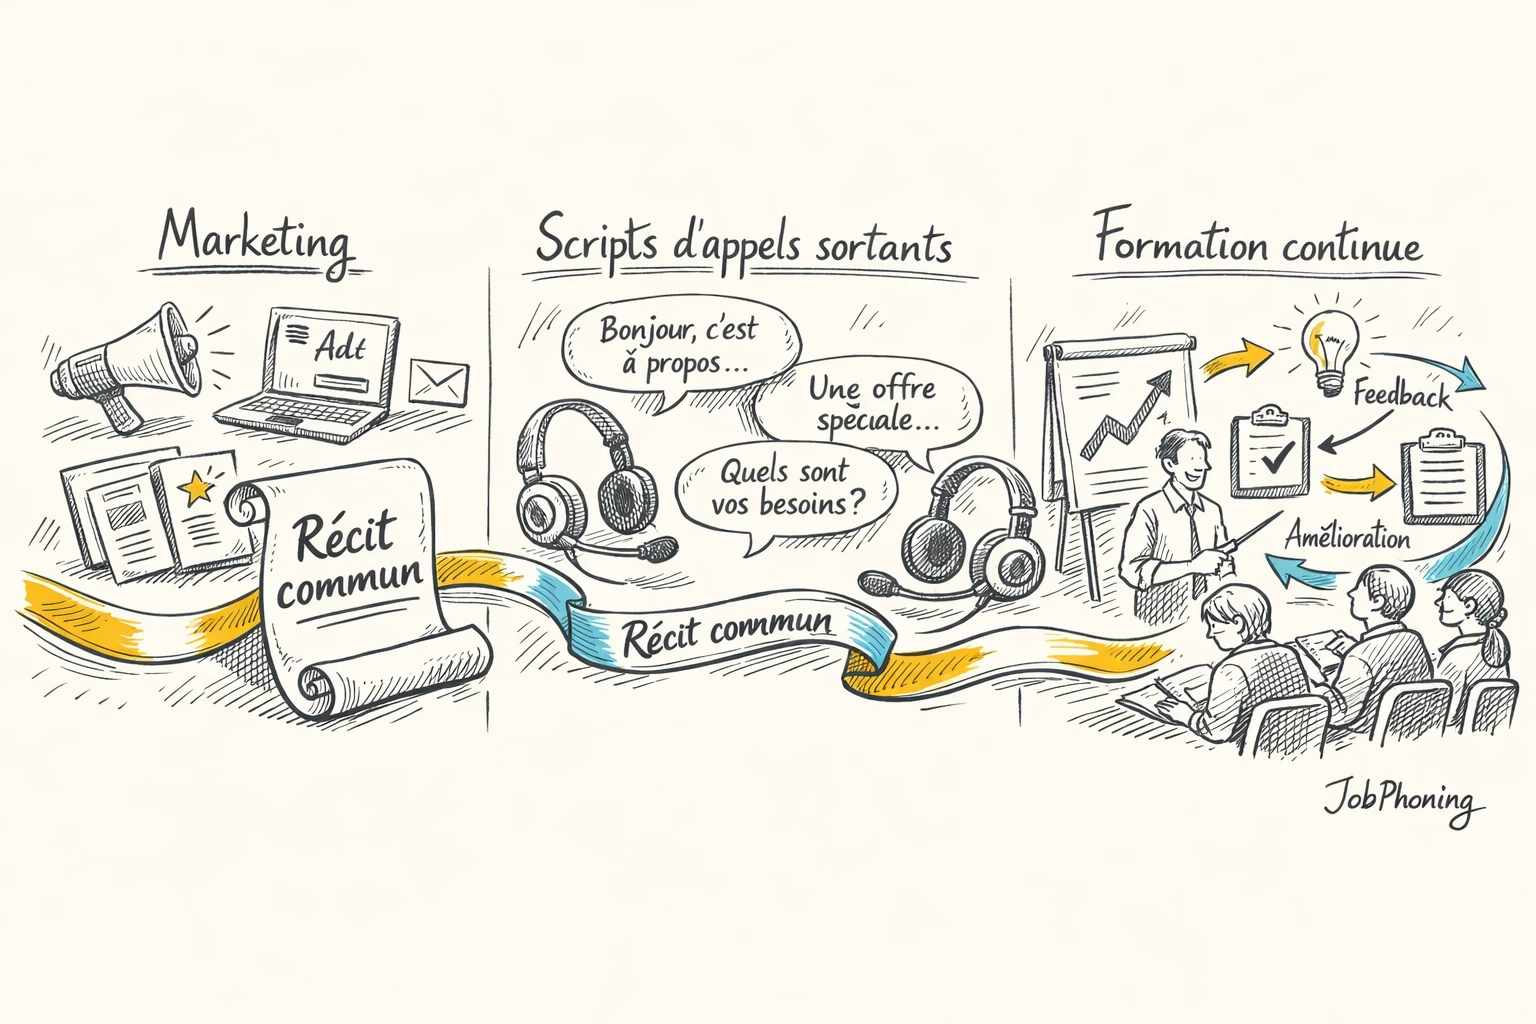 Marketing
Scripts d'appels sortants
Formation continue
Adt
Récit
commun
Bonjour, c'est
ă propos...
Une offre
spĕciale...
Quels sont
vos besoins?
Récit commun
Feedback
Amĕlioration
JobPhoning